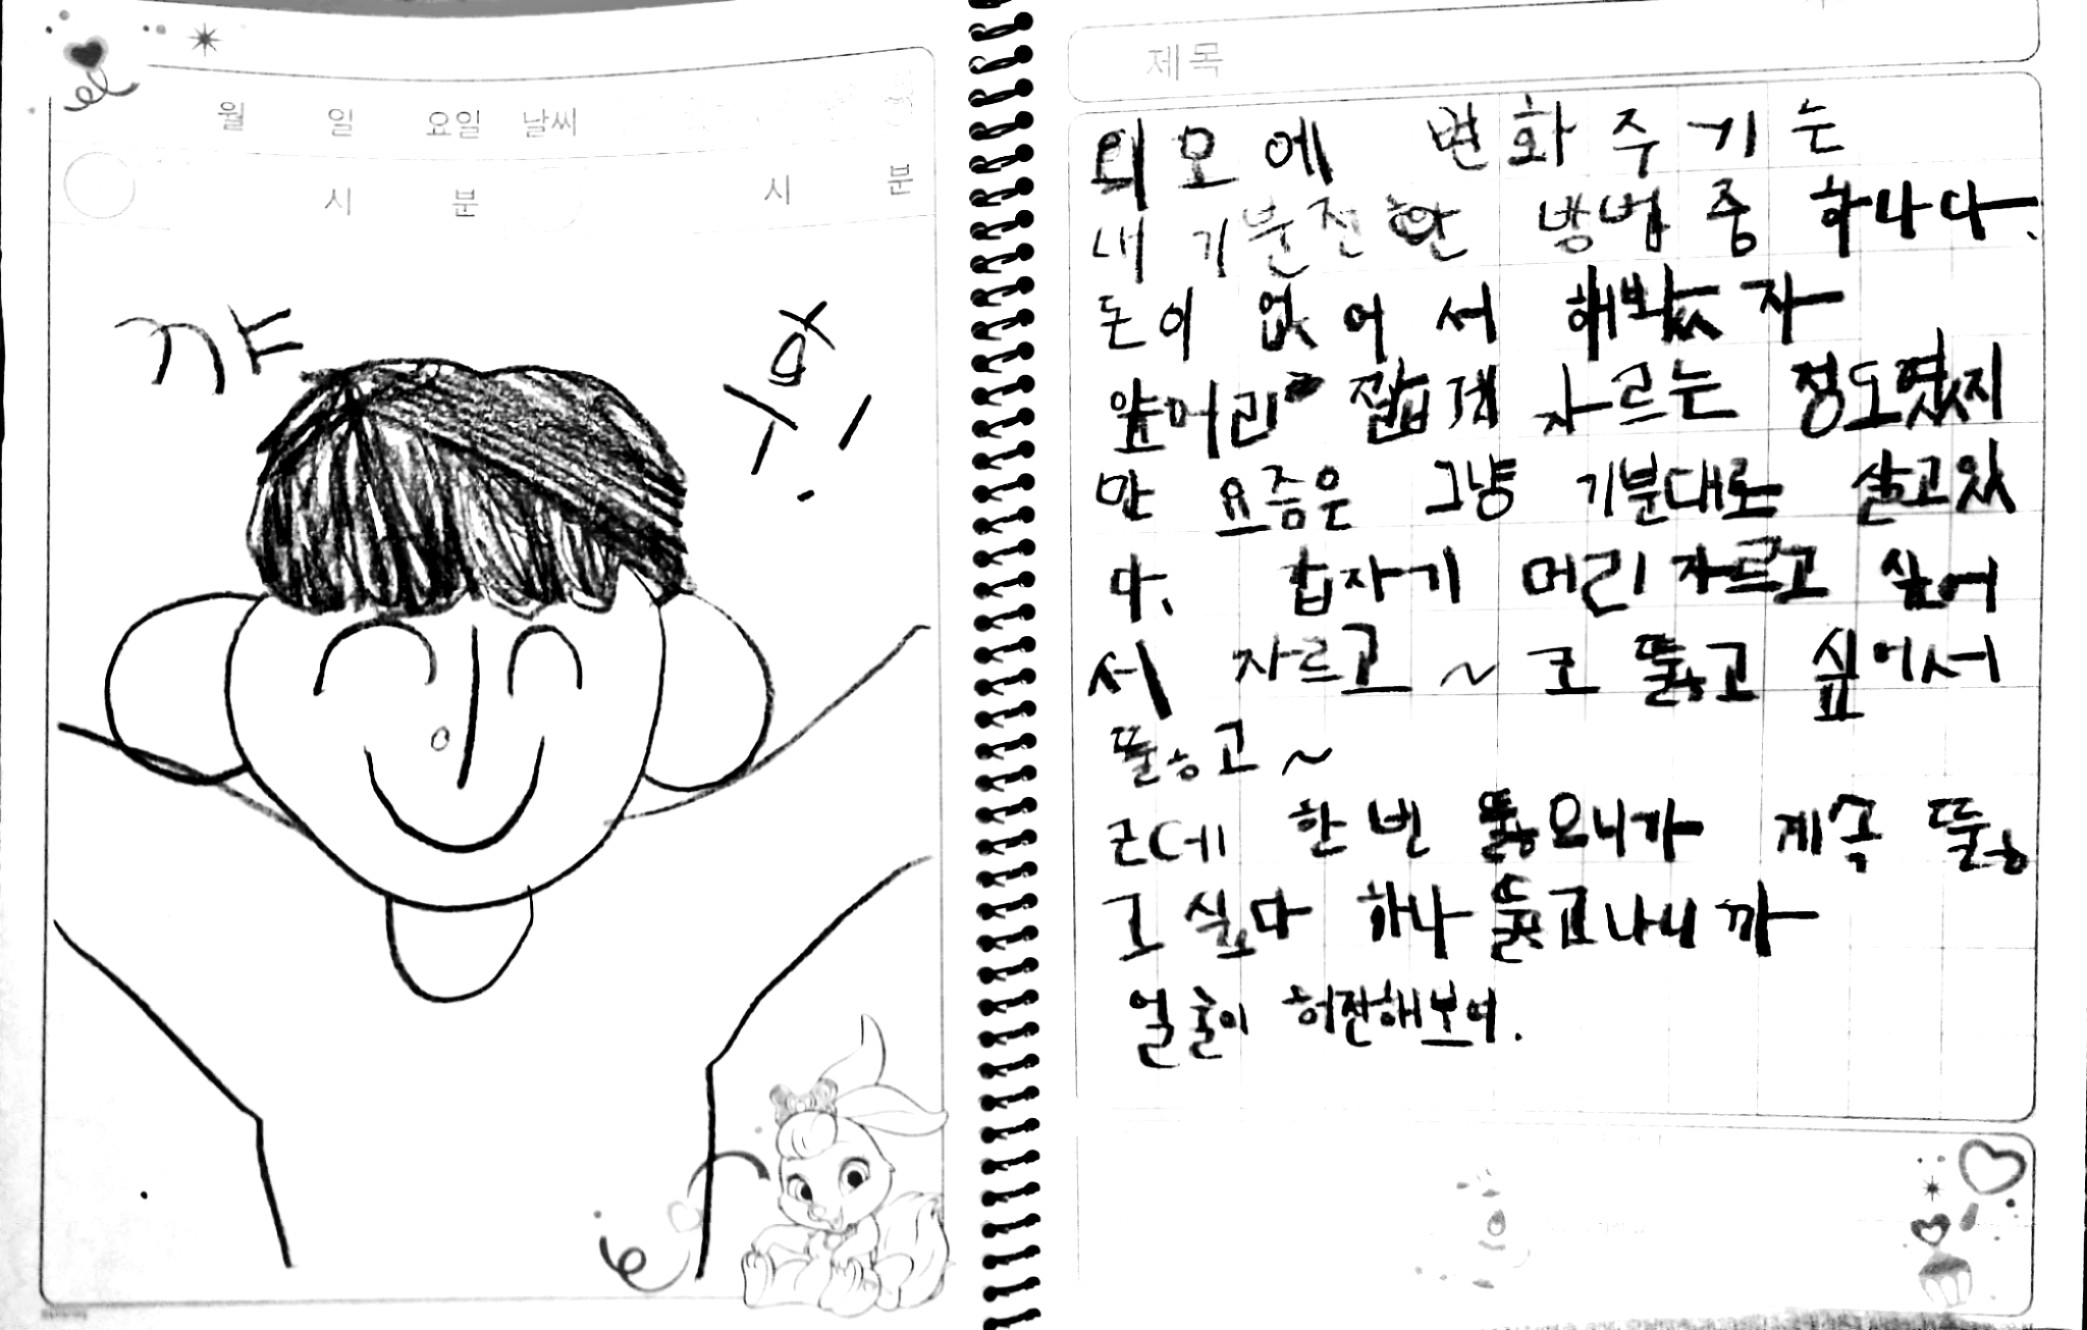 월 일 요일 날씨
시 분 시 분
꺄
핫!
제목
외모에 변화주기는
내 기분전환 방법 중 하나다.
돈이 없어서 해봤자
앞머리 짧게 자르는 정도였지
만 요즘은 그냥 기분대로 살고있
다. 갑자기 머리 자르고 싶어
서 자르고 ~ 코 뚫고 싶어서
뚫고 ~
근데 한 번 뚫으니까 계속 뚫
고 싶다 하나 뚫고나니까
얼굴이 허전해보여.